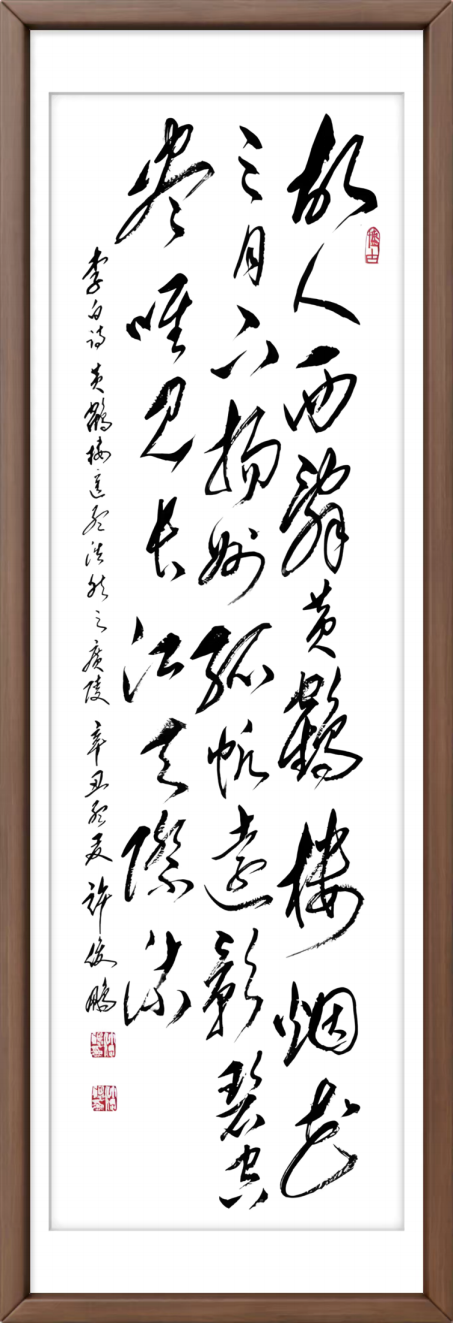 故人西辭黄鶴樓烟花
三月下揚州孤帆遠影碧空
盡唯見長江天際流
李白詩黄鶴樓送孟浩然之廣陵 辛丑孟夏 許俊鵬